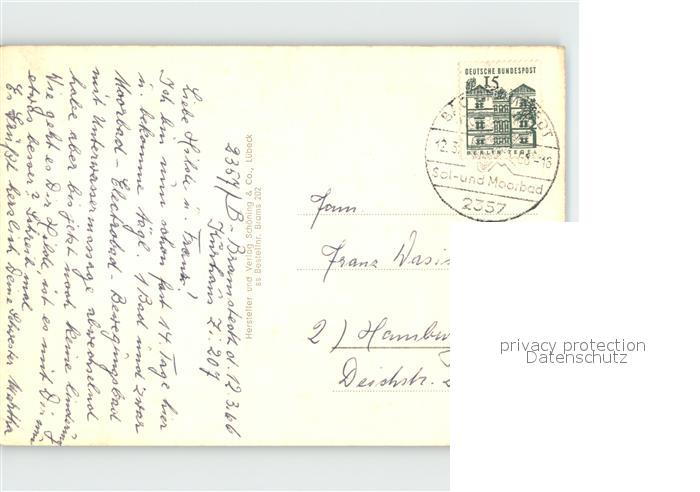 2357/B-Bramstedt d. 12.3.66
Kurhaus Zi. 207
Liebe Hilde u. Franz!
Ich bin nun schon fast 14 Tage hier
u. bekomme tägl. 1 Bad und zwar
Moorbad - Electrobad - Bewegungsbad
mit Unterwassermassage abwechselnd
habe aber bis jetzt noch keine Linderung
Wie geht es Dir Hilde, ist es mit Dir nun
etwas besser? Schreib mal
Es grüßt herzlich Deine Schwester Martha
Hersteller und Verlag Schöning & Co., Lübeck
ss Bestellnr. Brams 202
DEUTSCHE BUNDESPOST
15
BERLIN-TEGEL
12.3.
-16
Sol-und Moorbad
2357
Fam
Franz Wasi
2) Hambur
Deichstr.
privacy protection
Datenschutz